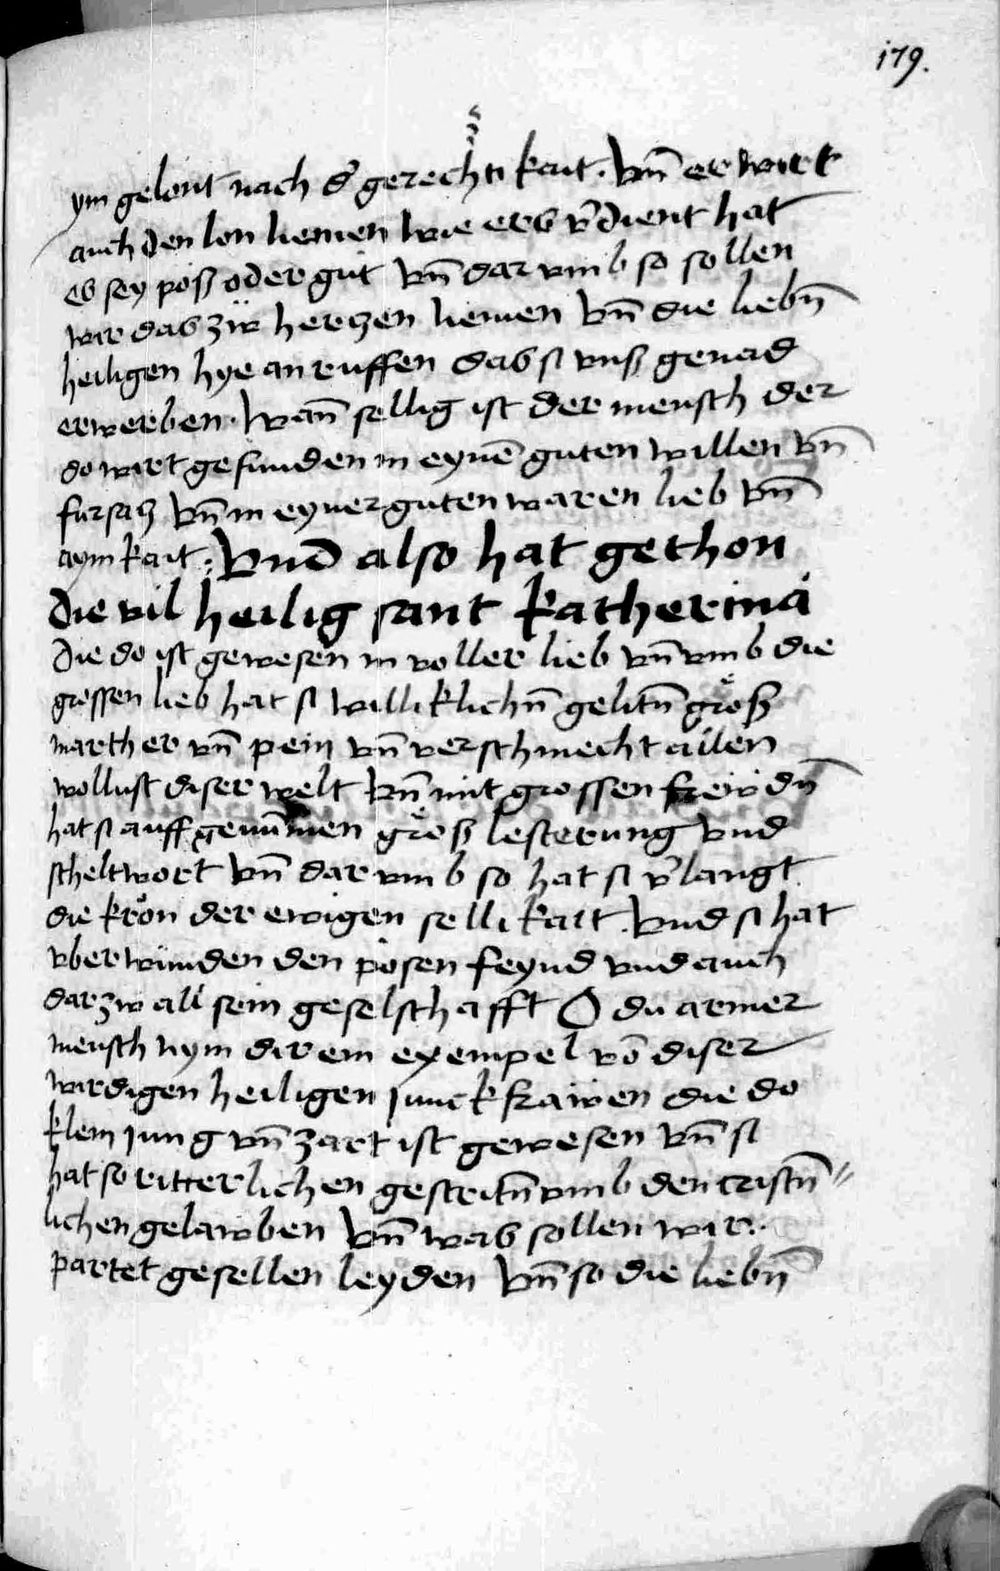 179.
ym gelont nach d' gerechti kait. Vn̄ er wirt
auch den lon nemen wie ers v̄dient hat
es sey poß oder gut vn̄ dar vmb so sollen
wir das zw̎ hertzen nemen vn̄ die liebn̄
heiligen hye an ruffen das si vnß genad
erwerben. Wan̄ sellig ist der mensch der
do wirt gefunden in eynē guten willen vn̄
fursatz vn̄ in eyner guten waren lieb vn̄
aym kait. Vnd also hat gethon
die vil heilig sant katherina
Die do ist gewesen in voller lieb vn̄ vmb die
grossen lieb hat si willi klichn̄ gelitn̄ groß
marther vn̄ pein vn̄ verschmecht allen
wollust diser welt vn̄ mit grossen frewdn̄
hat si auff genummen groß lesterung vnd
scheltwort vn̄ dar vmb so hat si v̄langt
die kron der ewigen selli kait. Vnd si hat
vberwunden den posen feynd vnd auch
darzw all sein geselschafft O du armer
mensch nym dir ein exempel vō diser
wirdigen heiligen junckfrawen die do
klein jung vn̄ zart ist gewesen vn̄ si
hat so ritterlichen gestritn̄ vmb den cristn̄〃
lichen gelawben vn̄ was sollen wir
partet gesellen leyden vn̄ so die liebn̄